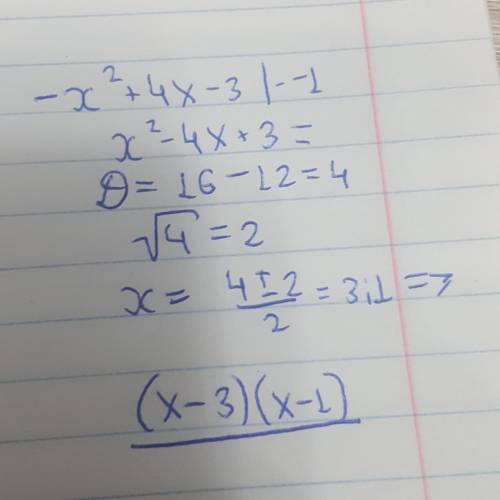 -x² + 4x - 3 | · -1
x² - 4x + 3 =
D = 16 - 12 = 4
√4 = 2
x = (4 ± 2)/2 = 3;1 =>
(x - 3)(x - 1)